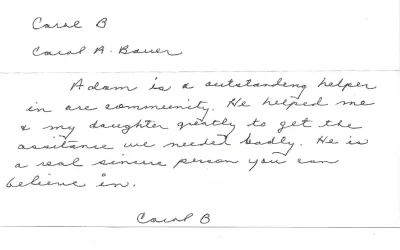 Carol B
Carol A. Bauer
Adam is a outstanding helper
in are community. He helped me
& my daughter greatly to get the
assitance we needed badly. He is
a real sincere person you can
believe in.
Carol B